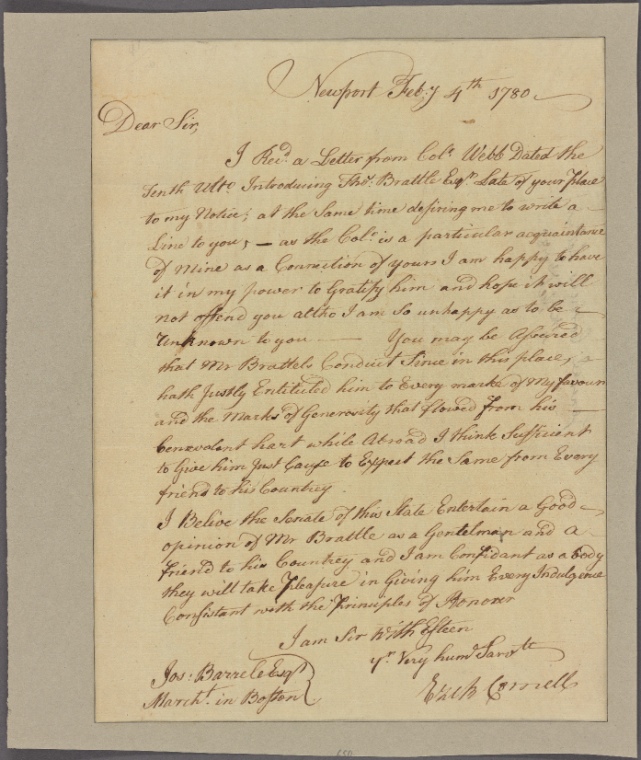 Newport Feby 4th 1780
Dear Sir,
I Recd. a Letter from Colo. Webb Dated the
tenth Ulto. Introducing Thos. Brattle Esqr. Late of your Place
to my Notice; at the Same time desiring me to write a
Line to you; — as the Colo. is a particular acquaintance
of Mine as a Connection of yours I am happy to have
it in my power to Gratify him and hope it will
not offend you altho I am So unhappy as to be
Unknown to you —— You may be Assured
that Mr Brattels Conduct Since in this place,
hath Justly Entituled him to Every mark of My favour
and the Marks of Generosity that flowed from his
benevolent hart while Abroad I think Sufficient
to Give him Just Cause to Expect the Same from Every
friend to his Countrey.
I Belive the Senate of this State Entertain a Good
opinion of Mr Brattle as a Gentelman and a
friend to his Countrey and I am Confidant as a body
they will take Pleasure in Giving him Every Indulgence
Consistant with the Principles of Honour
I am Sir With Esteen
yr. Very humb. Sarvtt
Ezek Cornell
Jos: Barrele Esqr
Marcht. in Boston